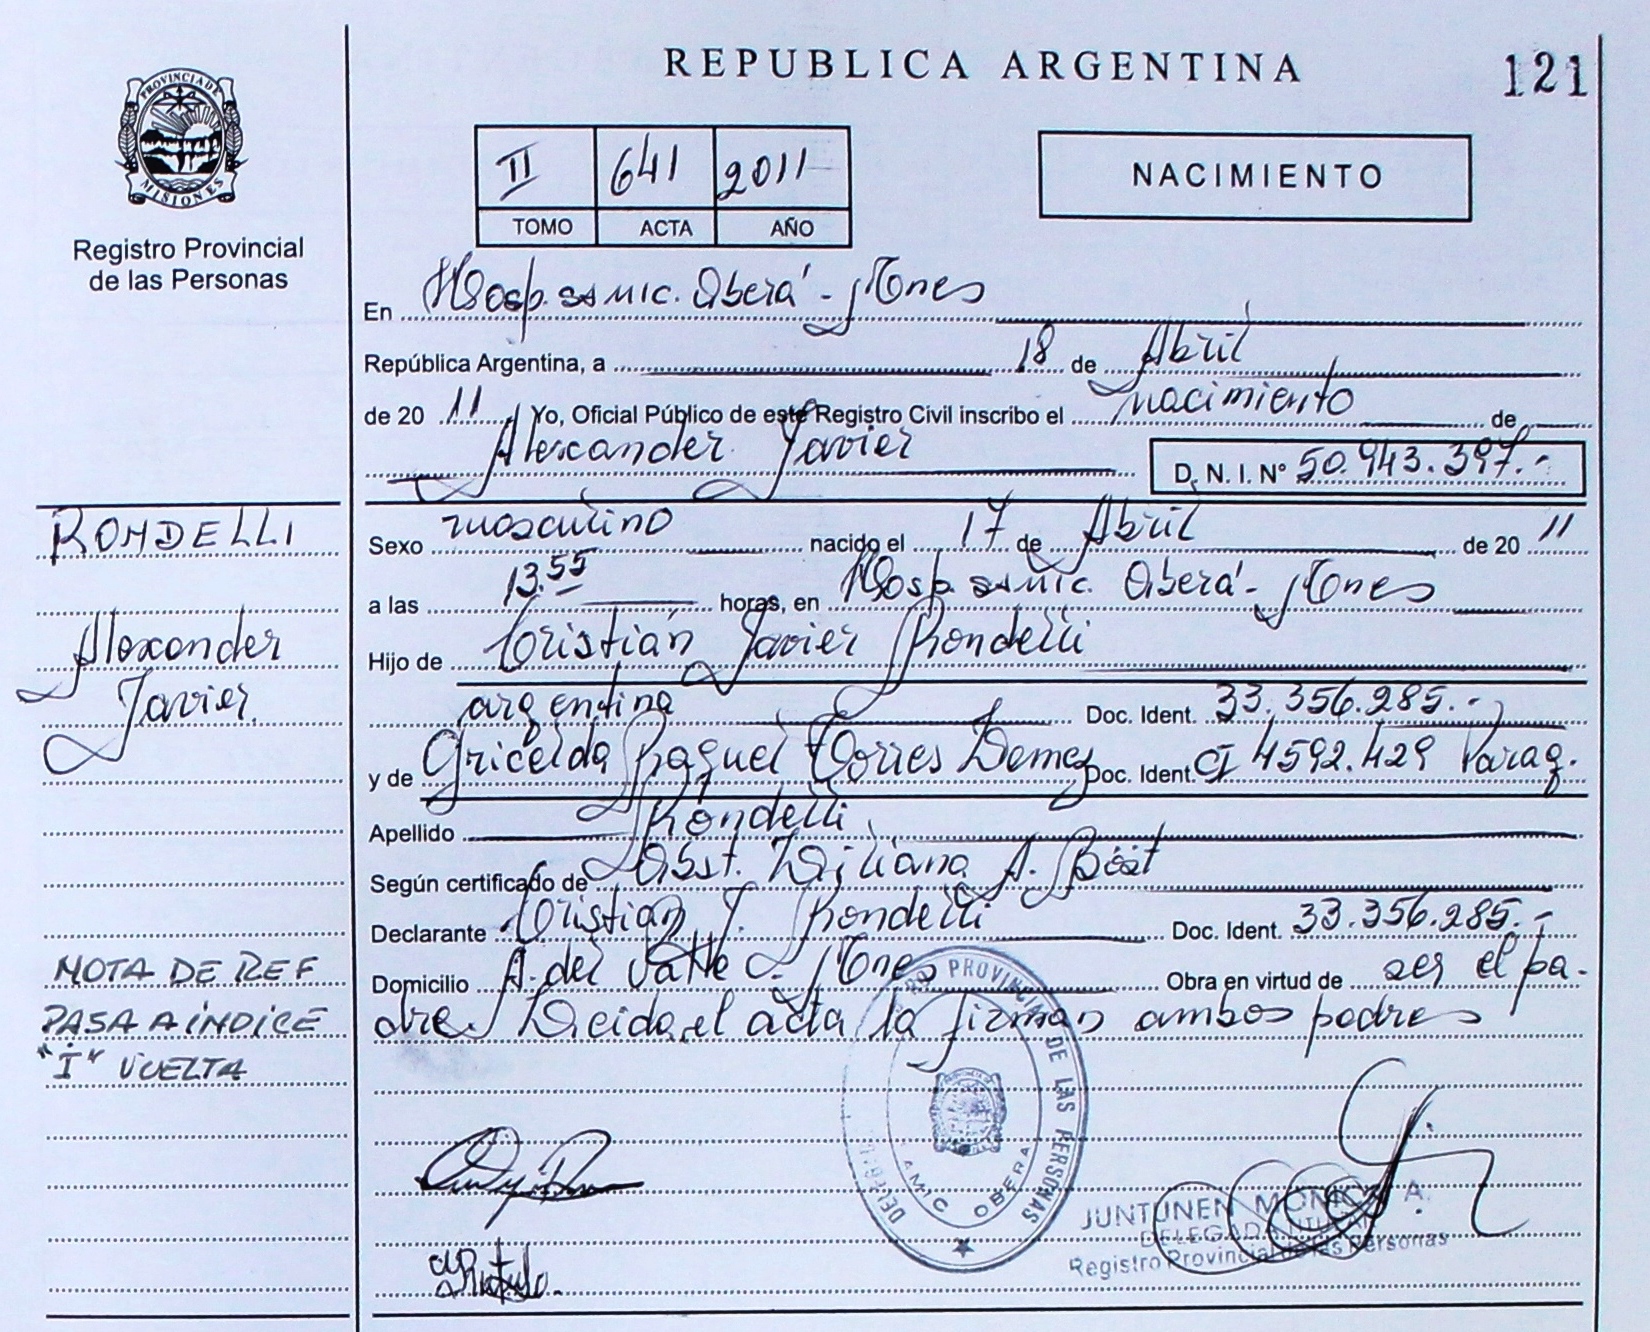 REPUBLICA ARGENTINA
121
PROVINCIA DE
MISIONES
Registro Provincial
de las Personas
II 641 2011
TOMO ACTA AÑO
NACIMIENTO
En Hosp. SAMIC. Oberá - Mnes
República Argentina, a 18 de Abril
de 20 11 Yo, Oficial Público de este Registro Civil inscribo el nacimiento de
Alexander Javier
D. N. I. Nº 50.943.397.-
RONDELLI
Alexander
Javier
Sexo masculino nacido el 17 de Abril de 20 11
a las 13.55 horas, en Hosp. SAMIC. Oberá - Mnes
Hijo de Cristian Javier Rondelli
argentina Doc. Ident. 33.356.285.-
y de Gricelda Raquel Torres Doc. Ident. CI 4592.429 Parag.
Apellido Rondelli
Según certificado de Obst. A.
Declarante Cristian J. Rondelli Doc. Ident. 33.356.285.-
Domicilio A. del Valle Mnes Obra en virtud de ser el pa-
dre. Leida el acta la firman ambos padres
NOTA DE REF
PASA A INDICE
"I" VUELTA
REGISTRO PROVINCIAL DE LAS PERSONAS
SAMIC OBERA
JUNTUNEN MONICA A.
DELEGADA TITULAR
Registro Provincial de las Personas